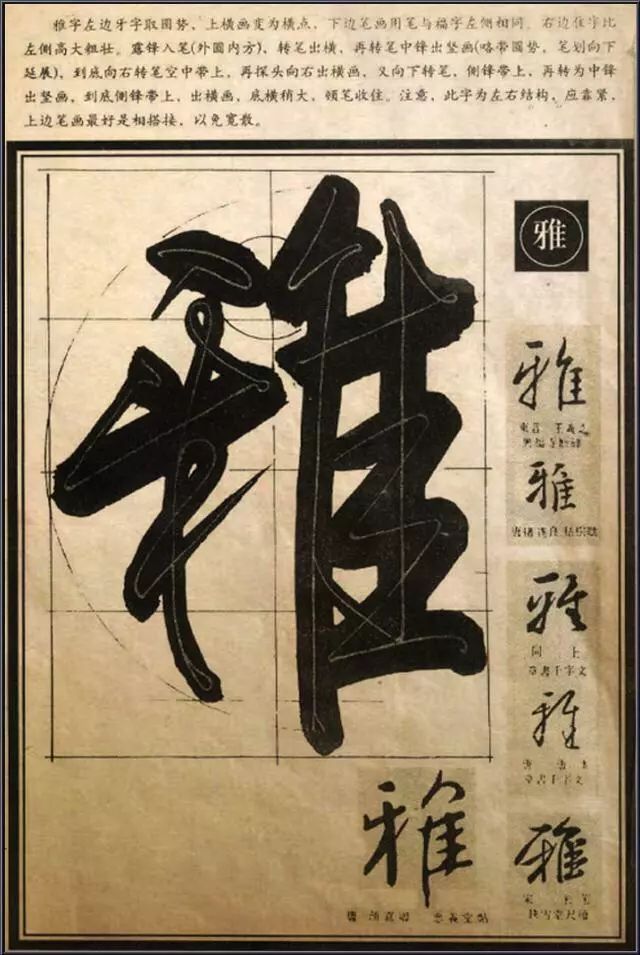 雅字左边牙字取圆势，上横画变为横点，下边笔画用笔与福字左侧相同。右边隹字比
左侧高大粗壮。露锋入笔(外圆内方)、转笔出横，再转笔中锋出竖画(略带圆势，笔划向下
延展)，到底向右转笔空中带上，再探头向右出横画，又向下转笔，侧锋带上，再转为中锋
出竖画，到底侧锋带上，出横画，底横稍大，顿笔收住。注意，此字为左右结构，应靠紧，
上边笔画最好是相搭接，以免宽散。
雅
雅
雅
東晋 王羲之
興福寺断碑
雅
雅
同上
草書千字文
雅
草書千字文
雅
雅